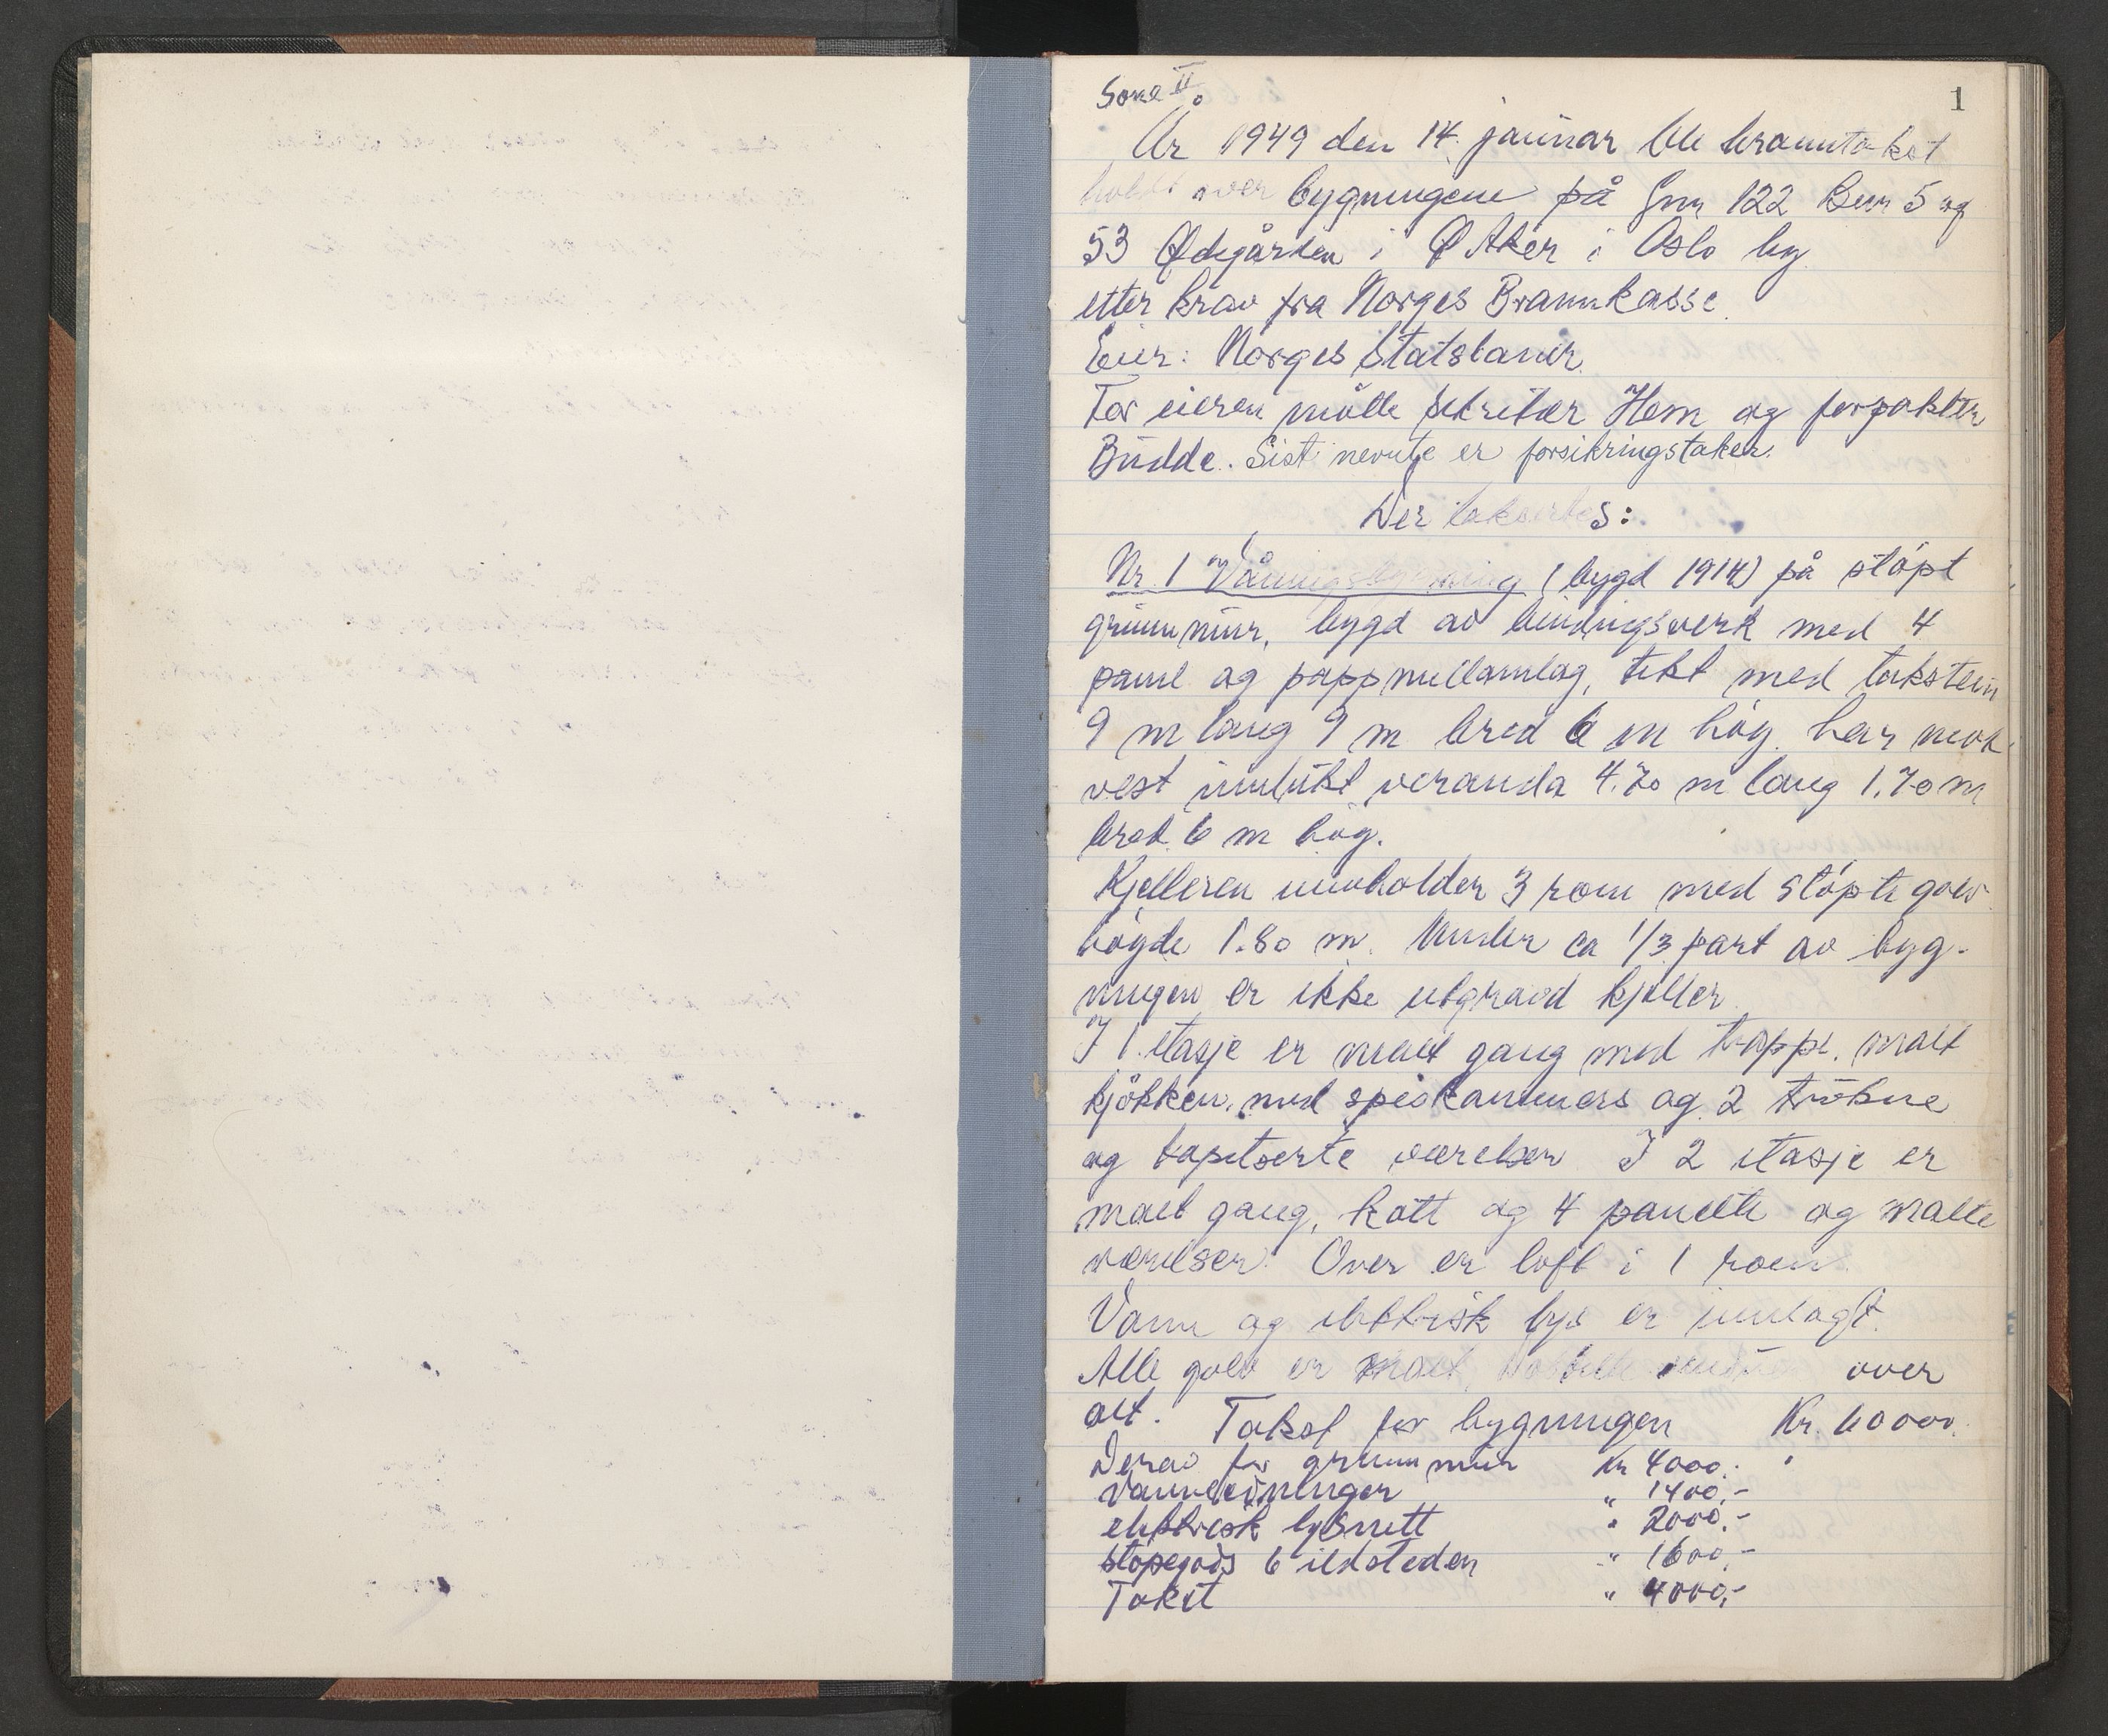 Sone II.
1
År 1949 den 14. januar ble branntakst
holdt over bygningene på Gnr 122 Bnr 5 og
53 Ødegården i Ø Aker i Oslo by
etter krav fra Norges Brannkasse.
Eier: Norges Statsbaner.
For eieren møtte sekretær Hem og forpakter
Budde. Sist nevnte er forsikringstaker.
Der taksertes:
Nr. 1 Våningsbygning (bygd 1914) på støpt
grunnmur, bygd av bindingsverk med 4
panel og pappmellomlag, tekt med takstein
9 m lang 9 m bred 6 m høg. har mot
vest innbukt veranda 4.70 m lang 1.70 m
bred 6 m høg.
Kjelleren inneholder 3 rom med støpte golv
høgde 1.80 m. Under ca 1/3 part av byg-
ningen er ikke utgravd kjeller.
I 1. etasje er malt gang med trapp. malt
kjøkken. med spiskammers og 2 trukne
og tapetserte værelser I 2 etasje er
malt gang, kott og 4 panelte og malte
værelser. Over er loft i 1 rom.
Vann og elektrisk lys er innlagt.
Alle golv er malt, over
alt. Takst for bygningen Kr. 60000.
Derav for grunnmur Kr 4000.-
Vannledninger " 1400.-
elektrisk lysnett " 2000.-
støpegods 6 ildsteder " 1600.-
Takst " 4000.-